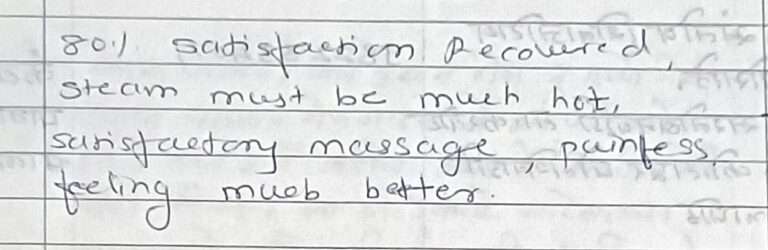 80% satisfaction Recovered,
steam must be much hot,
satisfactory massage, painless,
feeling much better.